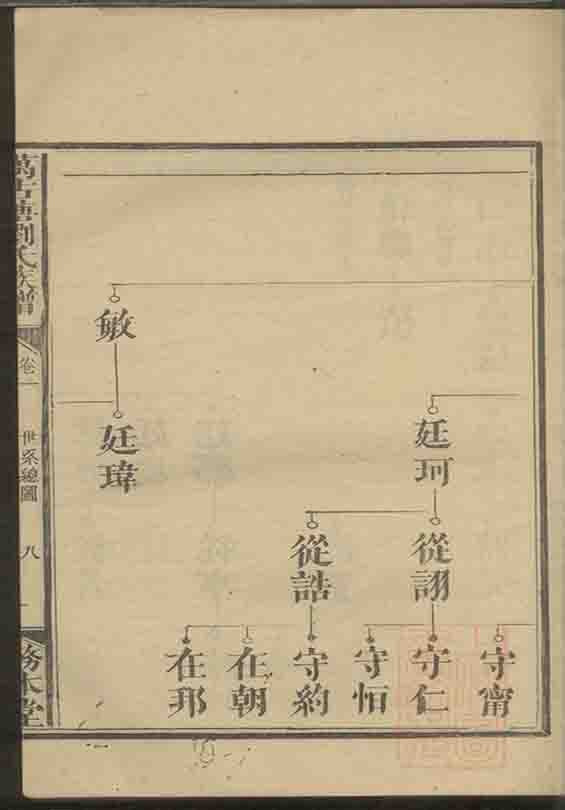 敏
廷瑋
廷珂
從詡
從誥
守甯
守仁
守恒
守約
在朝
在邦
萬古塘劉氏族譜
卷一
世系總圖
八
務本堂